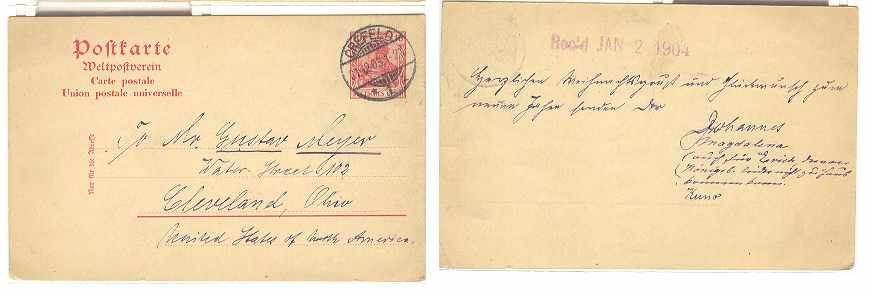 Postkarte
Weltpostverein
Carte postale
Union postale universelle
CREFELD
Nur für die Adresse
To Mr. Gustav Meyer
Water-Street 1102
Cleveland, Ohio
United States of North America.
Rec'd JAN 2 1904
Herzlichen Weihnachtsgruß und Glückwunsch zum
neuen Jahre senden Dir
Johannes
Magdalena
(auch für Erich, der
leider nicht zu Haus
kommen kann.
Kuno